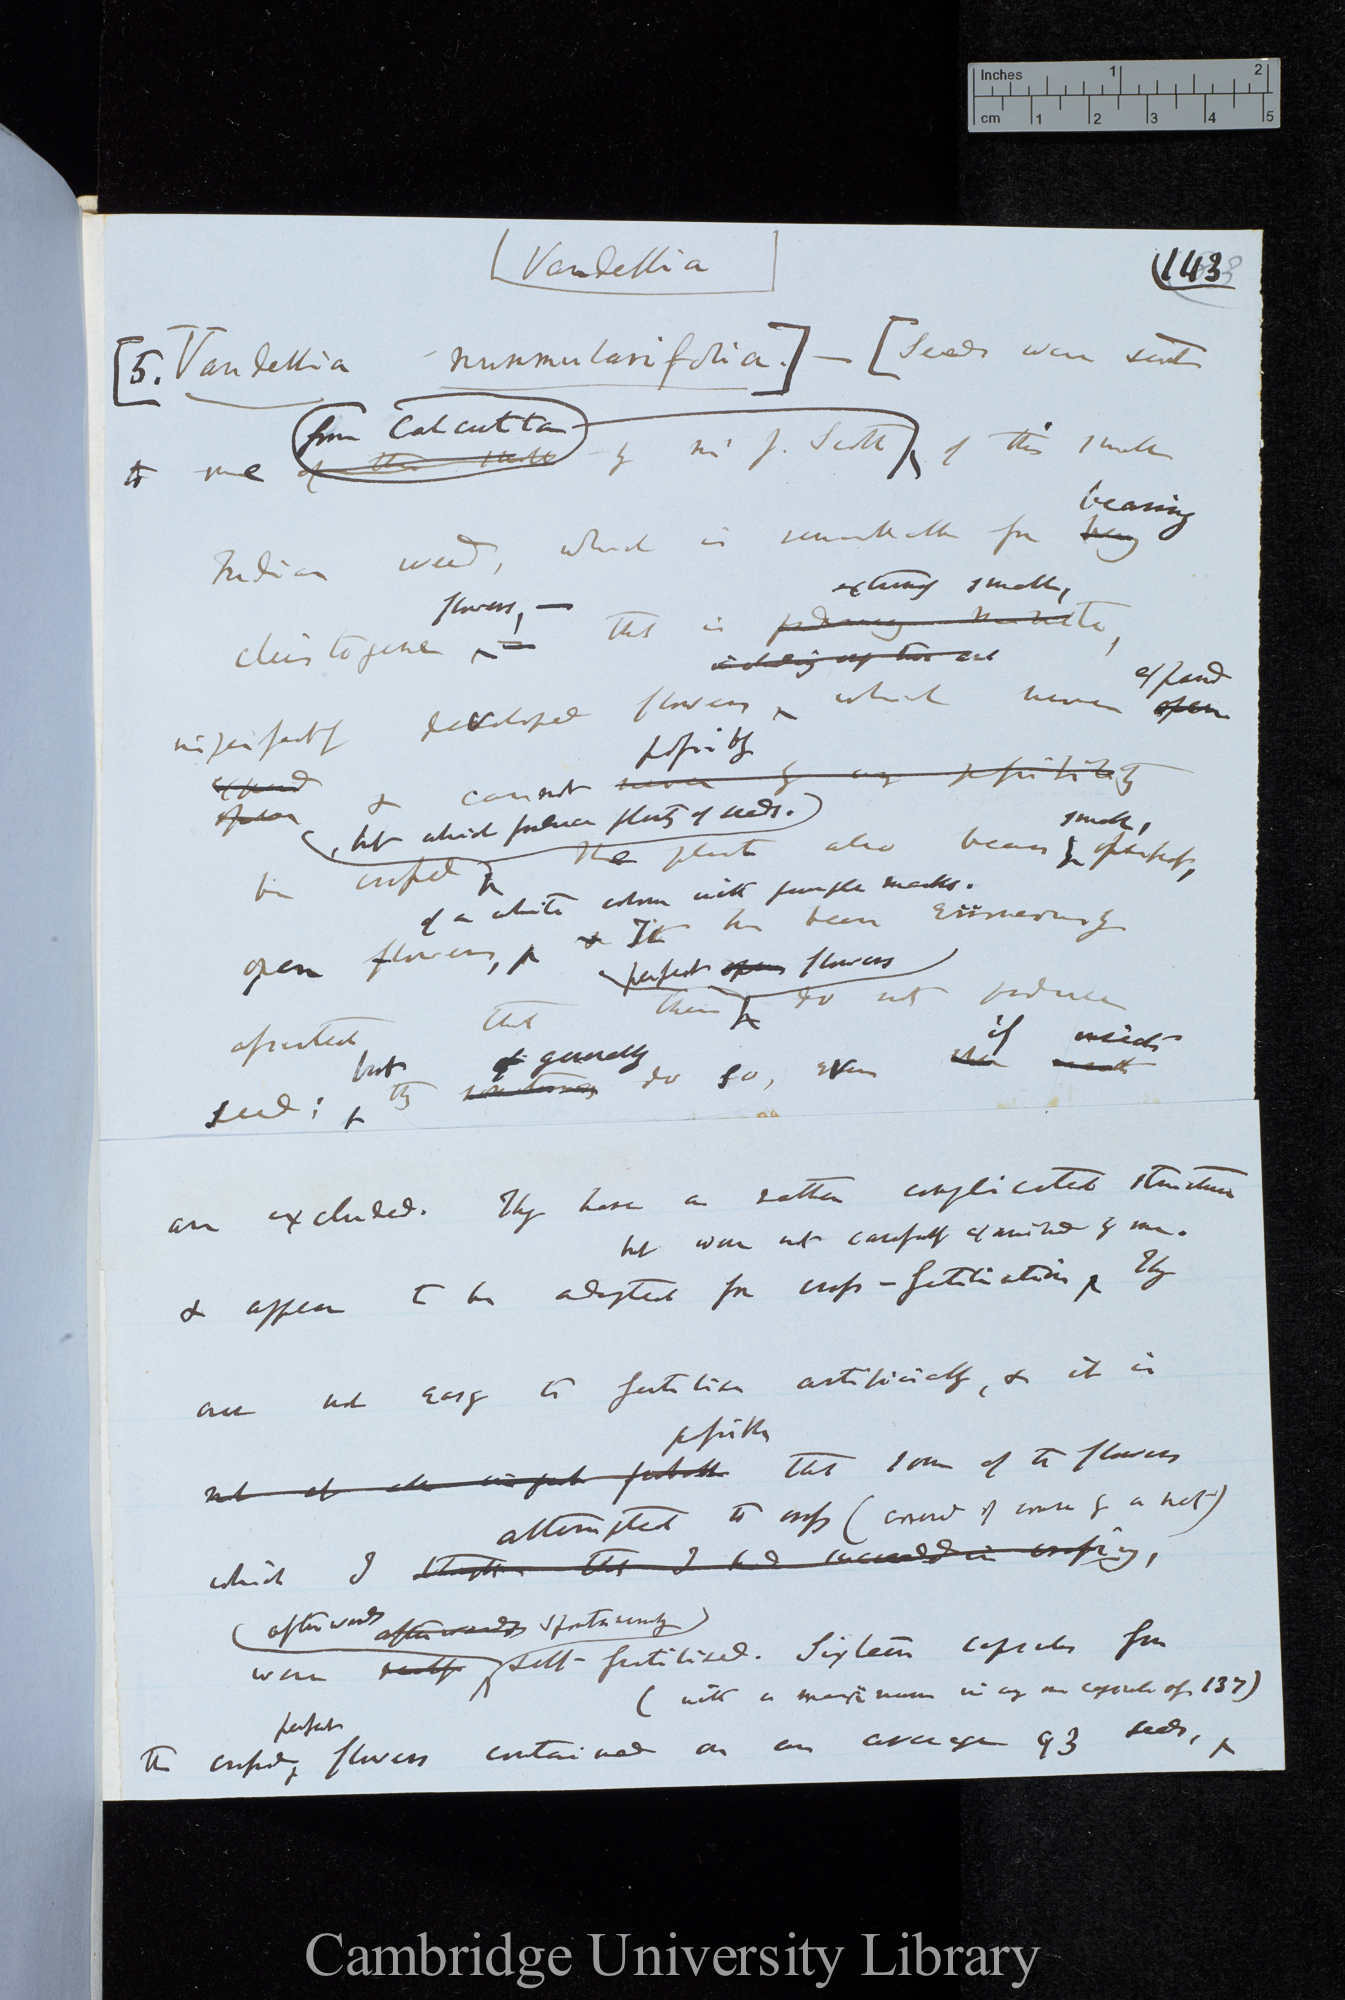 Inches 1 2
cm 1 2 3 4 5
Vandellia
143
[5. Vandellia nummularifolia.] — [Seeds were sent
from Calcutta
to me of this small by Mr J. Scott of this small
bearing
Indian weed, which is remarkable for
flowers, — extremely small,
cleistogene — that is minute,
expand
imperfectly developed flowers, which never open
possibly
expand & cannot never by any possibility
open
, but which produce plenty of seeds. small,
be crossed The plant also bears & perfect,
of a white colour with purple marks.
open flowers, & It has been erroneously
perfect open flowers
asserted that these do not produce
but generally if insects
seed; they sometimes do so, even when insects
are excluded. They have a rather complicated structure
but were not carefully examined by me.
& appear to be adapted for cross-fertilisation, They
are not easy to fertilise artificially, & it is
possible
that some of the flowers
attempted to cross (covered of course by a net)
which I thought that I had succeeded in crossing,
afterwards afterwards spontaneously
were self-fertilised. Sixteen capsules from
(with a maximum in any one capsule of 137)
perfect
the crossed flowers contained on an average 93 seeds,
Cambridge University Library